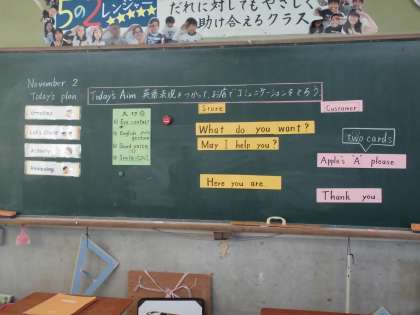 5の2レンジャー
だれに対してもやさしく
助け合えるクラス
November 2
Today's plan
Today's Aim 英語表現をつかって、お店でコミュニケーションをとろう。
Greeting
Let's Chant
Activity
Eye contact
Smile
Store
What do you want?
May I help you?
Here you are.
Customer
two cards
Apple's "A" please.
Thank you